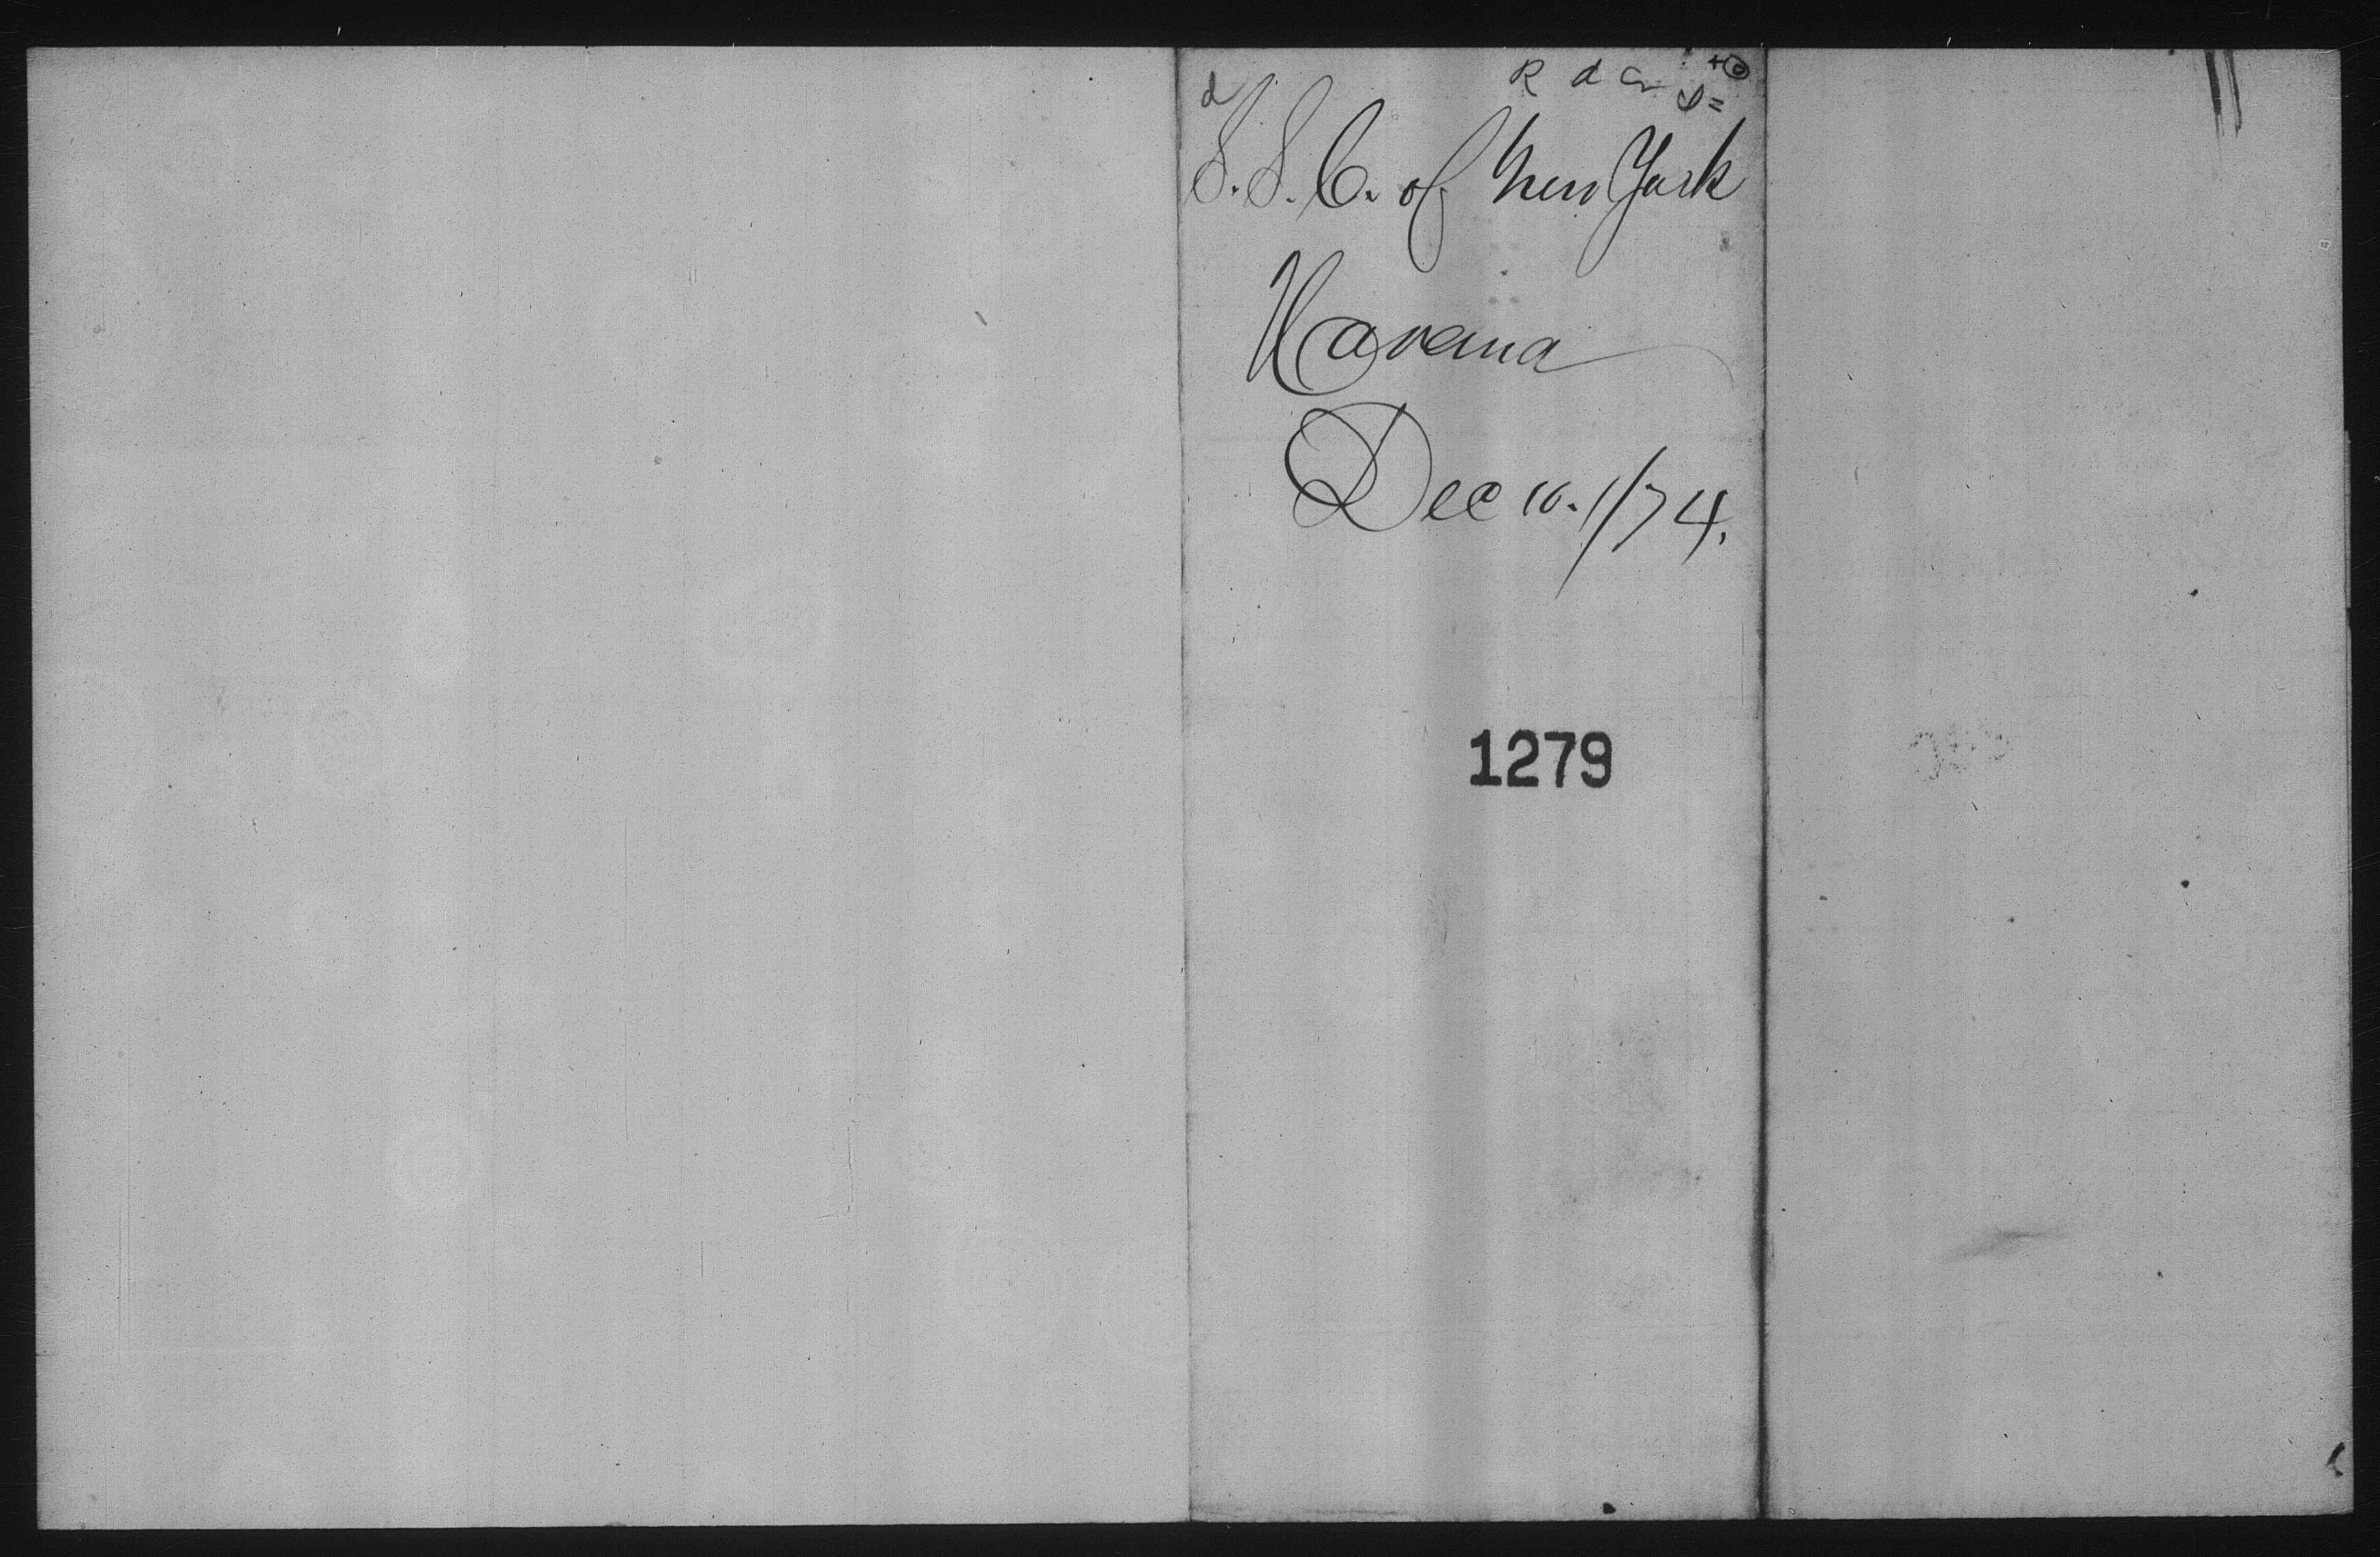 d
R d
S. S. C. of New York
Havana
Dec 10. 1/74.
1279